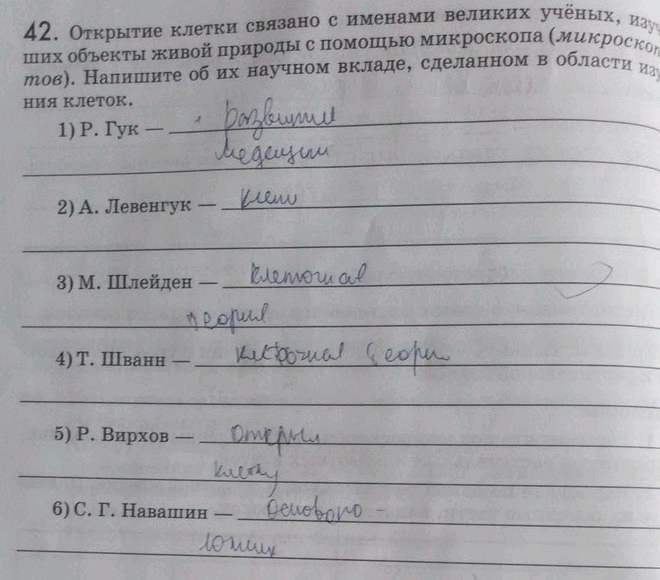 42. Открытие клетки связано с именами великих учёных, изуч
ших объекты живой природы с помощью микроскопа (микроскоп
тов). Напишите об их научном вкладе, сделанном в области изу
ния клеток.
1) Р. Гук — развитие
2) А. Левенгук —
3) М. Шлейден — клеточная
теория
4) Т. Шванн — клеточная теори
5) Р. Вирхов — открыл
клетку
6) С. Г. Навашин — осново